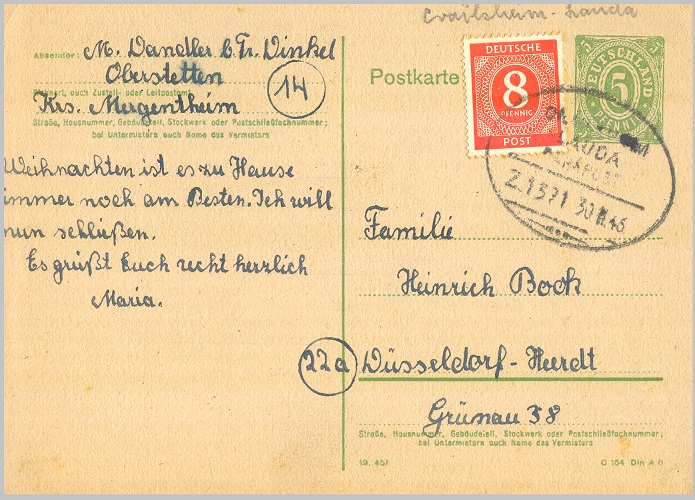 Crailsheim - Lauda
Absender: M. Dandler b. Fr. Dinkel
Oberstetten
Wohnort, auch Zustell- oder Leitpostamt
14
Krs. Mergentheim
Straße, Hausnummer, Gebäudeteil, Stockwerk oder Postschließfachnummer;
bei Untermietern auch Name des Vermieters
Weihnachten ist es zu Hause
immer noch am Besten. Ich will
nun schließen.
Es grüßt Euch recht herzlich
Maria.
Postkarte
DEUTSCHE
8
PFENNIG
POST
DEUTSCHLAND
5 5
5
PFENNIG
LAUDA
BAHNPOST
Z.1371 30.11.46
Familie
Heinrich Bock
22a Düsseldorf-Heerdt
Grünau 38
Straße, Hausnummer, Gebäudeteil, Stockwerk oder Postschließfachnummer;
bei Untermietern auch Name des Vermieters
19. 45
C 154 Din A 6